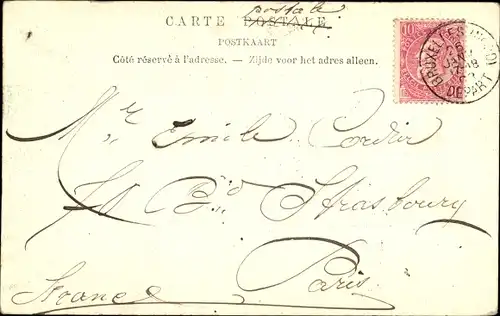 postale
CARTE POSTALE
POSTKAART
Côté réservé à l'adresse. — Zijde voor het adres alleen.
10
BRUXELLES
DEPART
Mr Emile Cordier
Bd Strasbourg
Paris
France